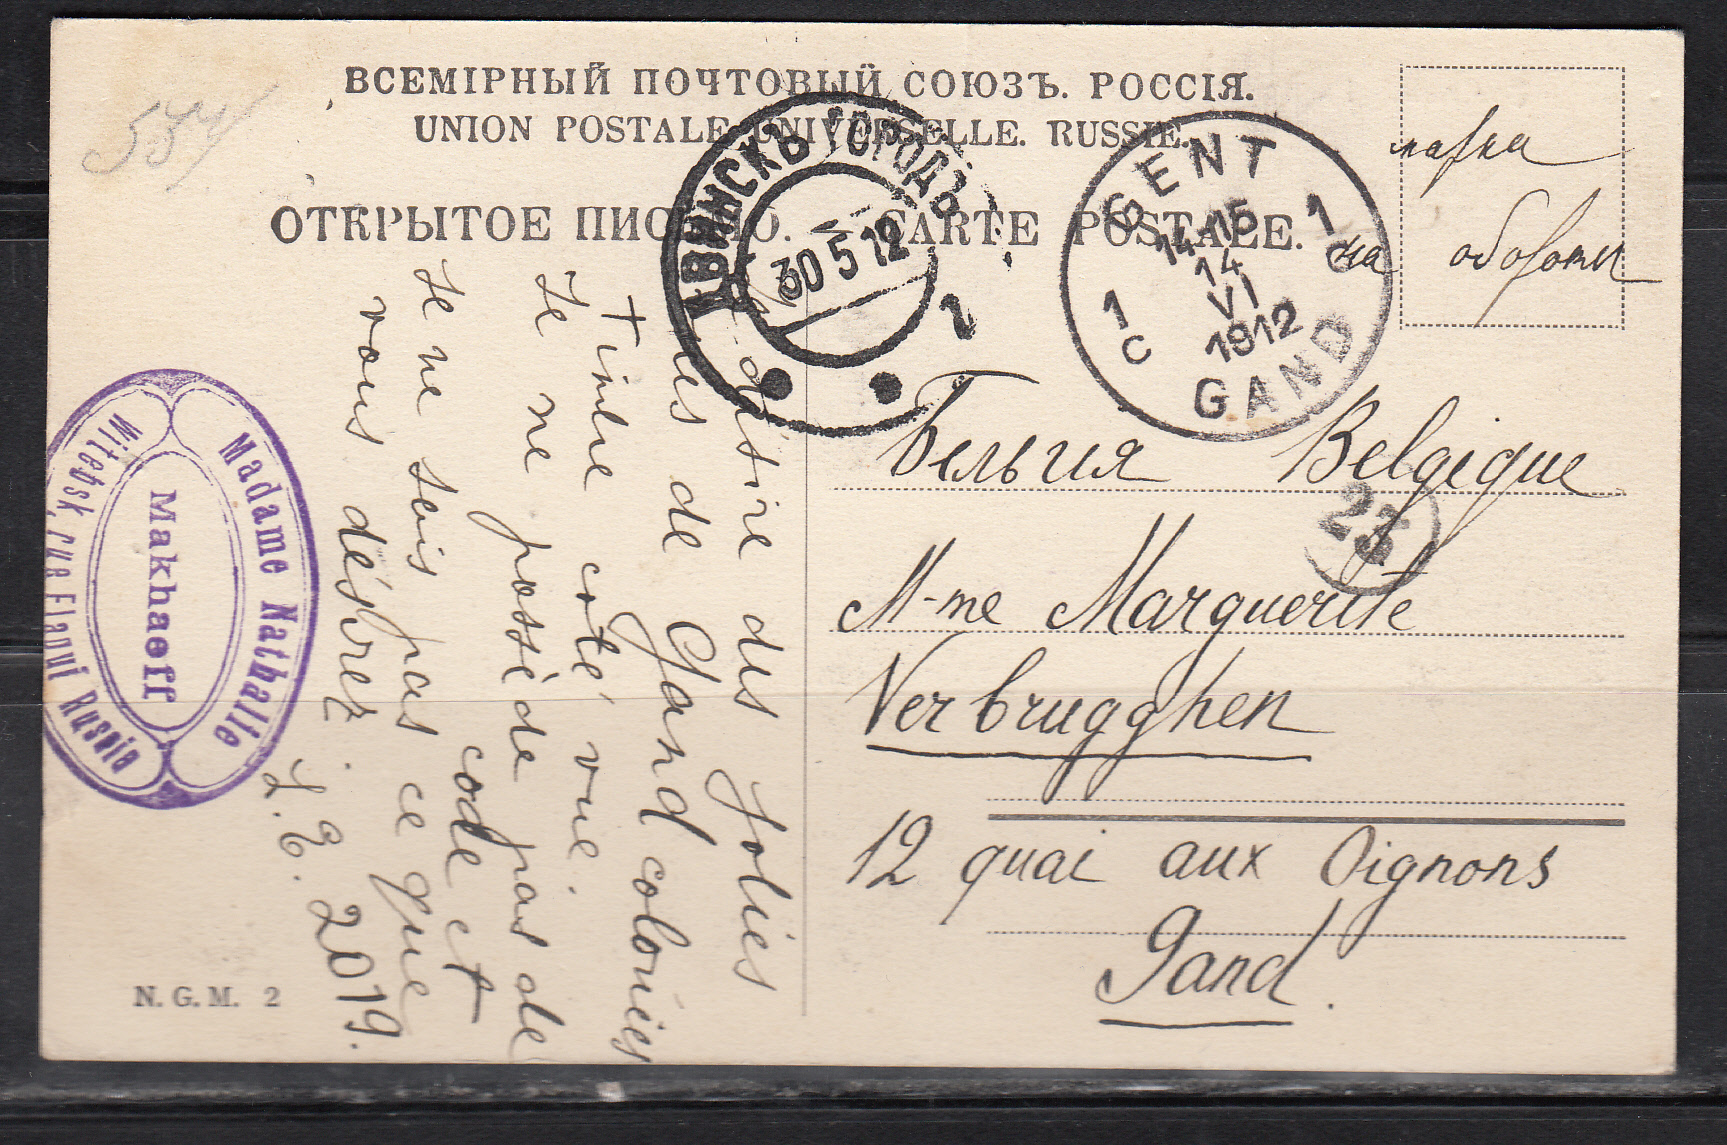 554
ВСЕМІРНЫЙ ПОЧТОВЫЙ СОЮЗЪ. РОССІЯ.
UNION POSTALE UNIVERSELLE. RUSSIE.
ОТКРЫТОЕ ПИСЬМО. — CARTE POSTALE.
марка
на обороте
ДВИНСКЪ ГОРОДЪ
30 5 12
1
GENT
1 C
14-15
14
VI
1912
1 C
GAND
Бельгия Belgique
23
M-me Marguerite
Verbrugghen
12 quai aux Oignons
Gand.
Je désire des jolies
vues de Gand colonies
+ timbre coté vue.
Je ne possède pas de
code et
Je ne sais pas ce que
vous désirez.
L. E. 2019.
Madame Nathalie
Makhaeff
Witebsk, rue Elagui Russia
N. G. M. 2